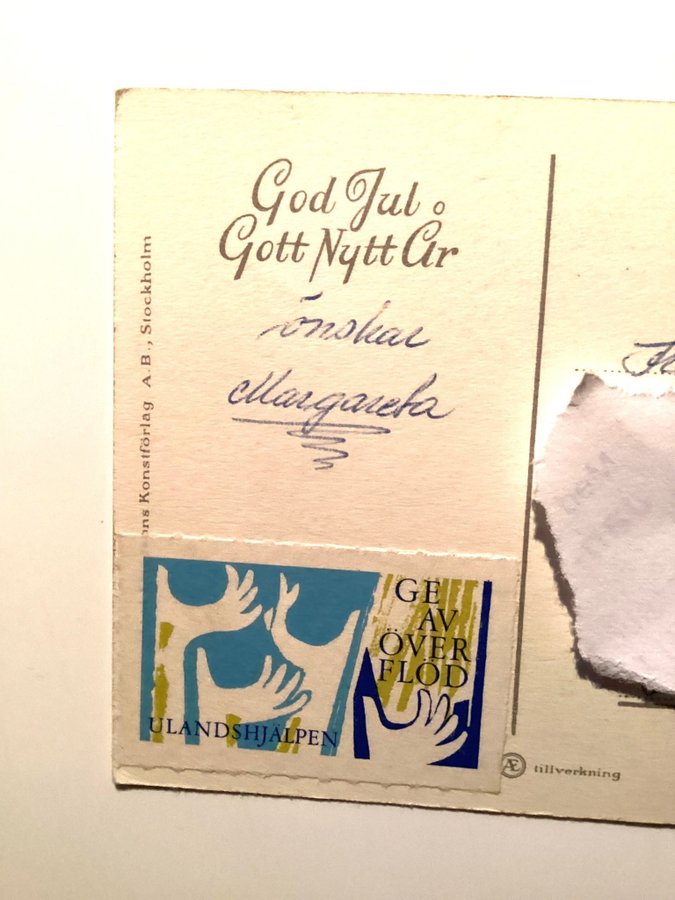 God Jul o
Gott Nytt År
önskar
Margareta
ns Konstförlag A.B., Stockholm
GE
AV
ÖVER
FLÖD
ULANDSHJÄLPEN
Æ tillverkning